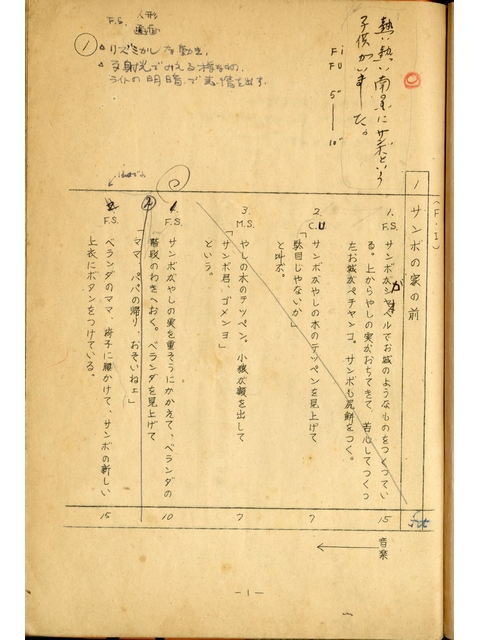 熱い熱い南の国にサンボという
子供がいました。
Fi
FU
5"
10"
F.S.
人形
①
リズミカルな動き。
反射光でみえる
ライトの明暗で表情を出す。
(F・I)
1 サンボの家の前
1. F.S.
サンボがシャベルでお城のようなものをつくってい
る。上からやしの実がおちてきて、苦心してつくっ
たお城がペチャンコ。サンボも尻餅をつく。
15
2. C.U
サンボがやしの木のテッペンを見上げて
「駄目じゃないか」
と叫ぶ。
7
3. M.S.
やしの木のテッペン。小猿が顔を出して
「サンボ君、ゴメンヨ」
という。
7
F.S.
サンボがやしの実を重そうにかかえて、ベランダの
階段のわきへおく。ベランダを見上げて
「ママ、パパの帰り、おそいねェ」
10
F.S.
ベランダのママ、椅子に腰かけて、サンボの新しい
上衣にボタンをつけている。
15
音楽
－1－